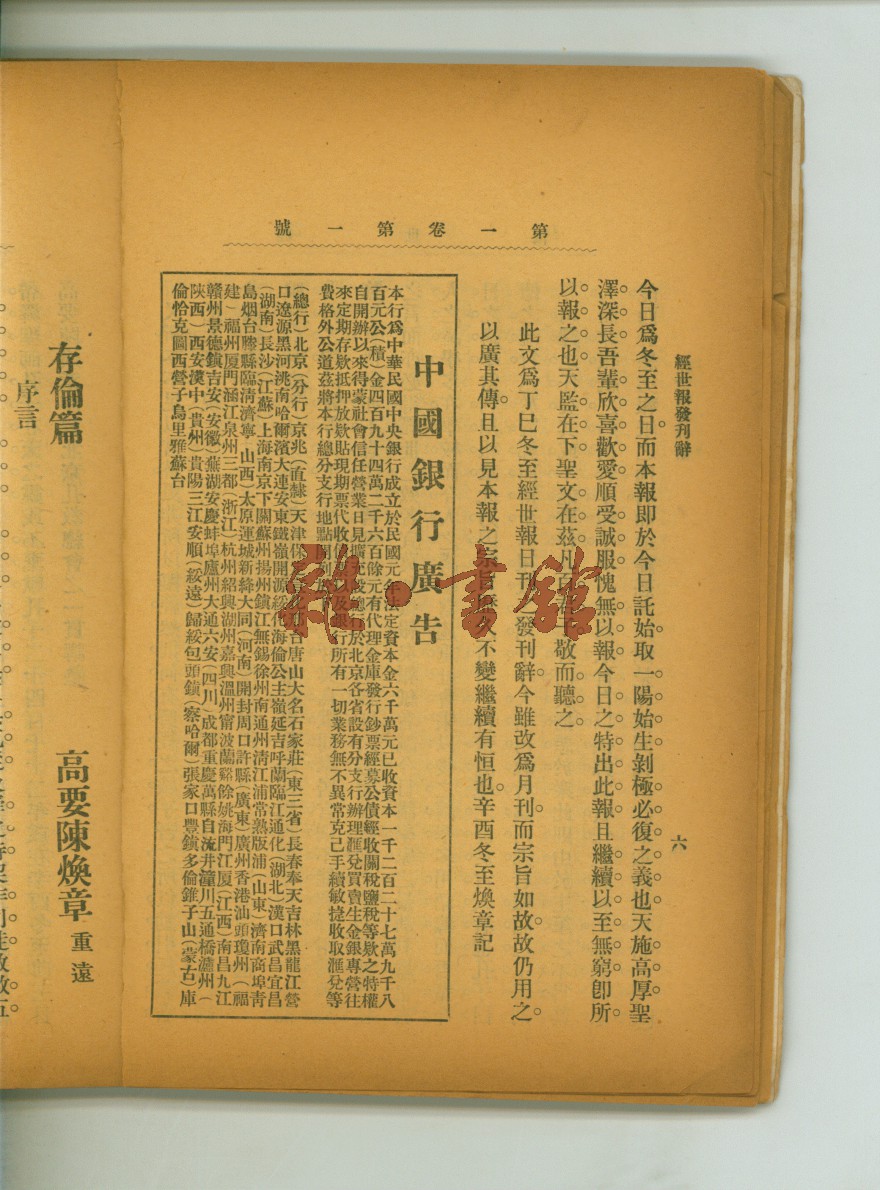 第一卷第一號
經世報發刊辭
六
今日爲冬至之日而本報即於今日託始取一陽始生剝極必復之義也天施高厚聖
澤深長吾輩欣喜歡愛順受誠服愧無以報今日之特出此報且繼續以至無窮卽所
以報之也天監在下聖文在茲凡百君子敬而聽之
此文爲丁巳冬至經世報日刊之發刊辭今雖改爲月刊而宗旨如故故仍用之
以廣其傳且以見本報之宗旨歷久不變繼續有恒也辛酉冬至煥章記
中國銀行廣告
本行爲中華民國中央銀行成立於民國元年法定資本金六千萬元已收資本一千二百二十七萬九千八
百元公(積)金四百九十四萬二千六百餘元有代理金庫發行鈔票經募公債經收關稅鹽稅等欵之特權
自開辦以來得蒙社會信任營業日見擴充設總行於北京各省設有分支行辦理滙兌買賣生金銀專營往
來定期存欵抵押放欵貼現期票代收 以及銀行所有一切業務無不異常克己手續敏捷收取滙兌等
費格外公道茲將本行總分支行地點開列
(總行)北京(分行)京兆(直隸)天津保 化邢台唐山大名石家莊(東三省)長春奉天吉林黑龍江營
口遼源黑河洮南哈爾濱大連安東鐵嶺開源綏化海倫公主嶺延吉呼蘭臨江通化(湖北)漢口武昌宜昌
(湖南)長沙(江蘇)上海南京下關蘇州揚州鎮江無錫徐州南通州淸江浦常熟版浦(山東)濟南商埠靑
島烟台滕縣臨淸濟寧(山西)太原運城新絳大同(河南)開封周口許縣(廣東)廣州香港汕頭瓊州(福
建)福州厦門涵江泉州三都(浙江)杭州紹興湖州嘉興溫州甯波蘭谿餘姚海門江厦(江西)南昌九江
贛州景德鎮吉安(安徽)蕪湖安慶蚌埠廬州大通六安(四川)成都重慶萬縣自流井潼川五通橋瀘州(
陝西)西安漢中(貴州)貴陽三江安順(綏遠)歸綏包頭鎮(察哈爾)張家口豐鎮多倫錐子山(蒙古)庫
倫恰克圖西營子烏里雅蘇台
存倫篇
高要陳煥章重遠
序言
雜·書館